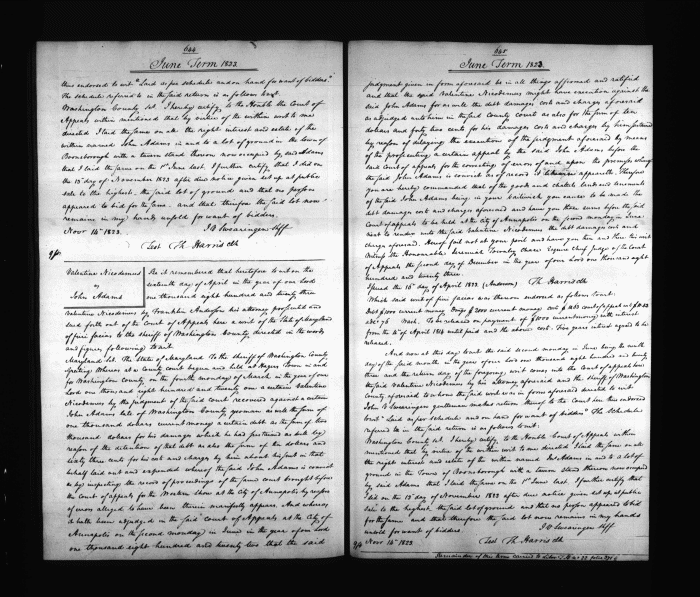 644
June Term 1823.
thus endorsed to wit "Laid as per schedule and on hand for want of bidders"
The schedule referred to in the said return is as follows to wit
Washington County Sct. I hereby certify to the Honble the Court of
Appeals within mentioned that by virtue of the within writ to me
directed I laid the same on all the right interest and estate of the
within named John Adams in and to a lot of ground in the town of
Boonsborough with a tavern stand thereon now occupied by said Adams
that I laid the same on the 1st June last. I further certify that I did on
the 15 day of November 1823 after due notice given set up at public
sale to the highest, the said lot of ground and that no person
appeared to bid for the same. and that therefore the said lot now
remains in my hands unsold for want of bidders.
Novr 14th 1823. J V Swearingen Sff.
Test Th. Harris clk
Valentine Nicodemus
vs
John Adams
Be it remembered that heretofore to wit on the
sixteenth day of April in the year of our lord
one thousand eight hundred and twenty three
Valentine Nicodemus by Franklin Anderson his attorney prosecuted and
sued forth out of the Court of Appeals here a writ of the State of Maryland
of fieri facias to the Sheriff of Washington County directed in the words
and figures following to wit
Maryland Sct. The State of Maryland To the Sheriff of Washington County
Greeting Whereas at a County court begun and held at Hagers Town in and
for Washington County on the fourth monday of March in the year of our
Lord one thousand eight hundred and twenty one a certain Valentine
Nicodemus by the judgment of the said court recovered against a certain
John Adams late of Washington County yeoman as well the sum of
one thousand dollars current money a certain debt as the sum of two
thousand dollars for his damages which he had sustained as well by
reason of the detention of that debt as also the sum of ten dollars and
sixty three cents for his cost and charges by him about his suit in that
behalf laid out and expended whereof the said John Adams is convict
as by inspecting the record of proceedings of the same court brought before
the Court of appeals for the Western shore at the City of Annapolis by reason
of errors alleged to have been therein manifestly appears. And whereas
it hath been adjudged in the said Court of Appeals at the City of
Annapolis on the second monday in June in the year of our Lord
one thousand eight hundred and twenty two that the said
645
June Term 1823.
judgment given in form aforesaid be in all things affirmed and ratified
and that the said Valentine Nicodemus might have execution against the
said John Adams for as well the debt damages cost and charges aforesaid
as adjudged unto him in the said County court as also for the sum of ten
dollars and forty two cents for his damages cost and charges by him sustained
by reason of delaying the execution of the judgment aforesaid by means
of the prosecuting a certain appeal by the said John Adams before the
said Court of appeals for the correcting of errors of and upon the premises whereof
the said John Adams is convict as of record it likewise appeareth. Therefore
you are hereby commanded that of the goods and chattels lands and tenements
of the said John Adams being in your bailiwick you cause to be made the
debt damages cost and charges aforesaid and have you those sums before the said
Court of appeals to be held at the City of Annapolis on the second monday in June
next to render unto the said Valentine Nicodemus the debt damages cost and
charges aforesaid. Hereof fail not at your peril and have you then and there this writ
Witness the Honorable Jeremiah Townley Chase Esquire chief Judge of the Court
of Appeals the second day of December in the year of our Lord one thousand eight
hundred and twenty three
Issued the 16th day of April 1823 (Anderson) Th Harris clk
Which said writ of fieri facias was thereon endorsed as follows to wit.
released.
And now at this day to wit the said second monday in June being the ninth
day of the said month in the year of our lord one thousand eight hundred and twenty
three and the return day of the foregoing writ comes into the Court of appeals here
the said Valentine Nicodemus by his attorney aforesaid and the Sheriff of Washington
County aforesaid to whom the said writ was in form aforesaid directed to wit
John V Swearingen gentleman makes return thereof to the Court here thus endorsed
to wit "Laid as per schedule and on hand for want of bidders" The Schedule
referred to in the said return is as follows to wit.
Washington County Sct. I hereby certify to the Honble Court of Appeals within
mentioned that by virtue of the within writ to me directed I laid the same on all
the right interest and estate of the within named John Adams in and to a lot of
ground in the Town of Boonsborough with a tavern stand thereon now occupied
by said Adams that I laid the same on the 1st June last. I further certify that
I did on the 15 day of November 1823 after due notice given set up at public
sale to the highest, the said lot of ground and that no person appeared to bid
for the same and that therefore the said lot now remains in my hands
unsold for want of bidders. J V Swearingen Sff.
Novr 14th 1823. Test Th. Harris clk